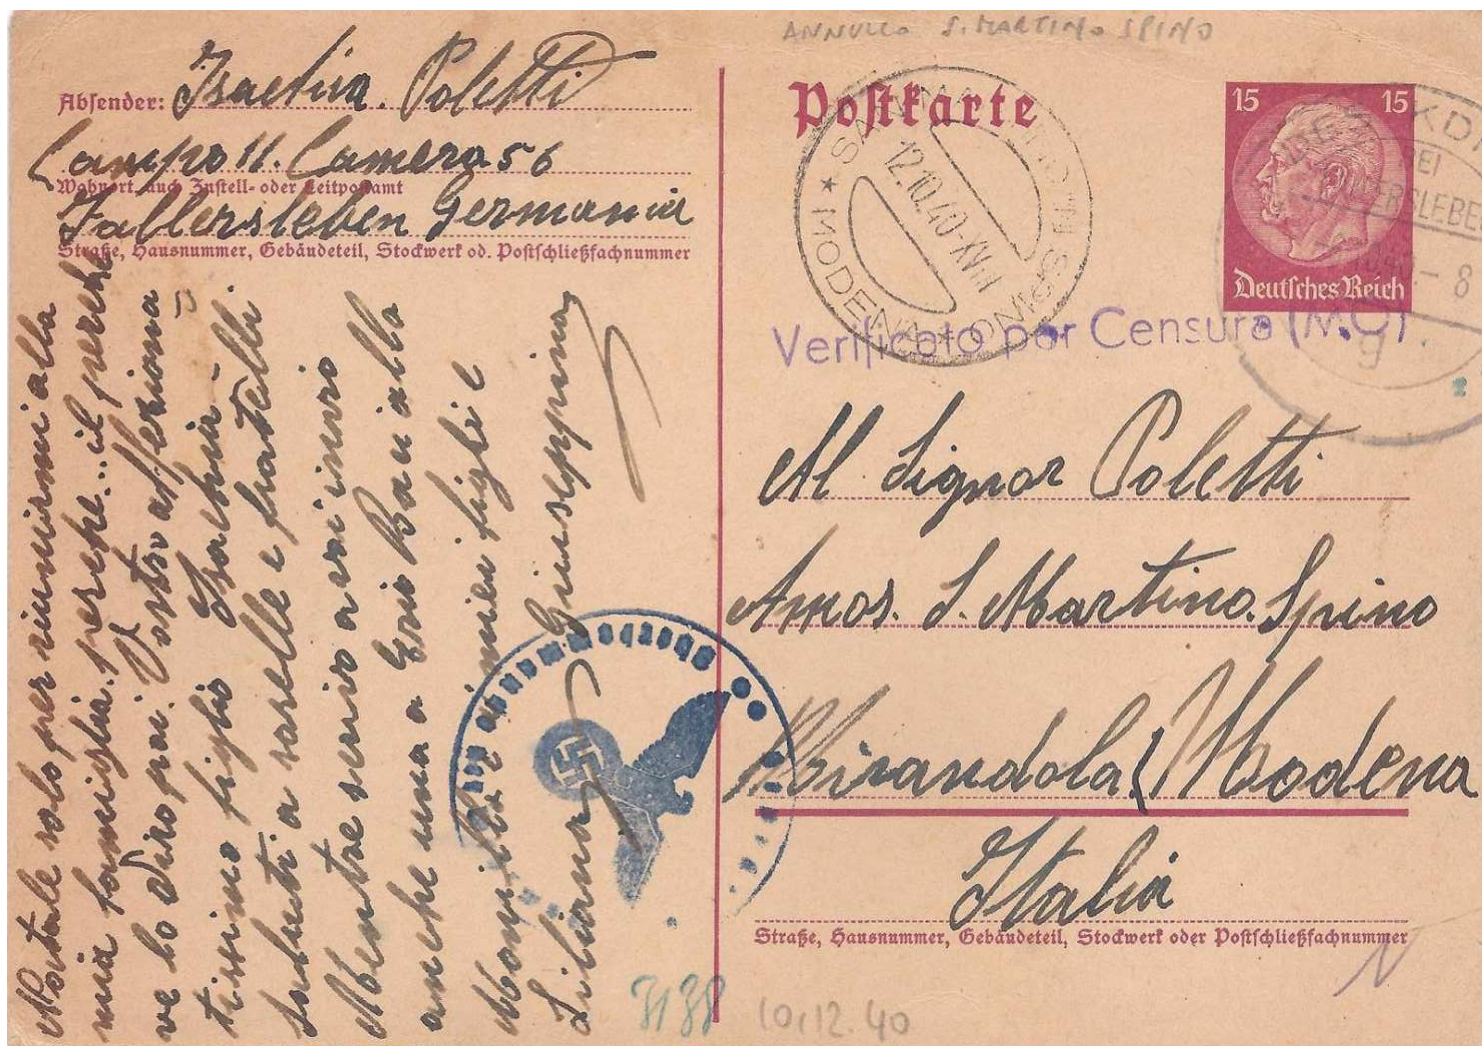 ANNULLO S. MARTINO SPINO
Absender: Isactina. Poletti
Campo 11. Camera 56
Wohnort, auch Zustell- oder Leitpostamt
Fallersleben Germania
Straße, Hausnummer, Gebäudeteil, Stockwerk od. Postschließfachnummer
Natale solo per riunirmi alla
mia famiglia. perche.. il perche
ve lo diro poi. Vostro affeziona=
tissimo figlio
saluti a sorelle e fratelli
Mentre scrivo a voi invio
anche una a Baci alla
miei figli e
Liliana Giuseppina
Postkarte
SAN MARTINO IN SPINO
12.10.40-XVIII
★ MODENA
15 15
Deutsches Reich
BEI
-8
g
Verificato per Censura (M.O)
Al Signor Poletti
Amos. S. Martino. Spino
Mirandola (Modena
Italia
Straße, Hausnummer, Gebäudeteil, Stockwerk oder Postschließfachnummer
3138
10,12.40